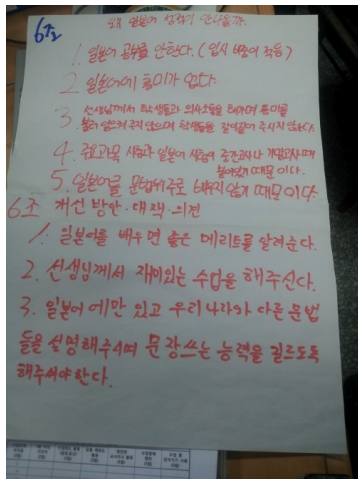 6조
왜 일본어 성적이 안나올까.
1. 일본어 공부를 안한다. (입시 비중이 적음)
2. 일본어에 흥미가 없다.
3. 선생님께서 학생들과 의사소통을 하며 흥미를
불러 일으켜 주지 않으며 학생들을 이끌어 주시지 않는다.
4. 주요과목 시험과 일본어 시험이 중간고사나 기말고사 때
붙어있기 때문이다.
5. 일본어를 문법위주로 배우지 않기 때문이다.
6조 개선 방안·대책·의견
1. 일본어를 배우면 좋은 메리트를 알려준다.
2. 선생님께서 재미있는 수업을 해주신다.
3. 일본어에만 있고 우리나라와 다른 문법
들을 설명해주시며 문장쓰는 능력을 길르도록
해주셔야한다.